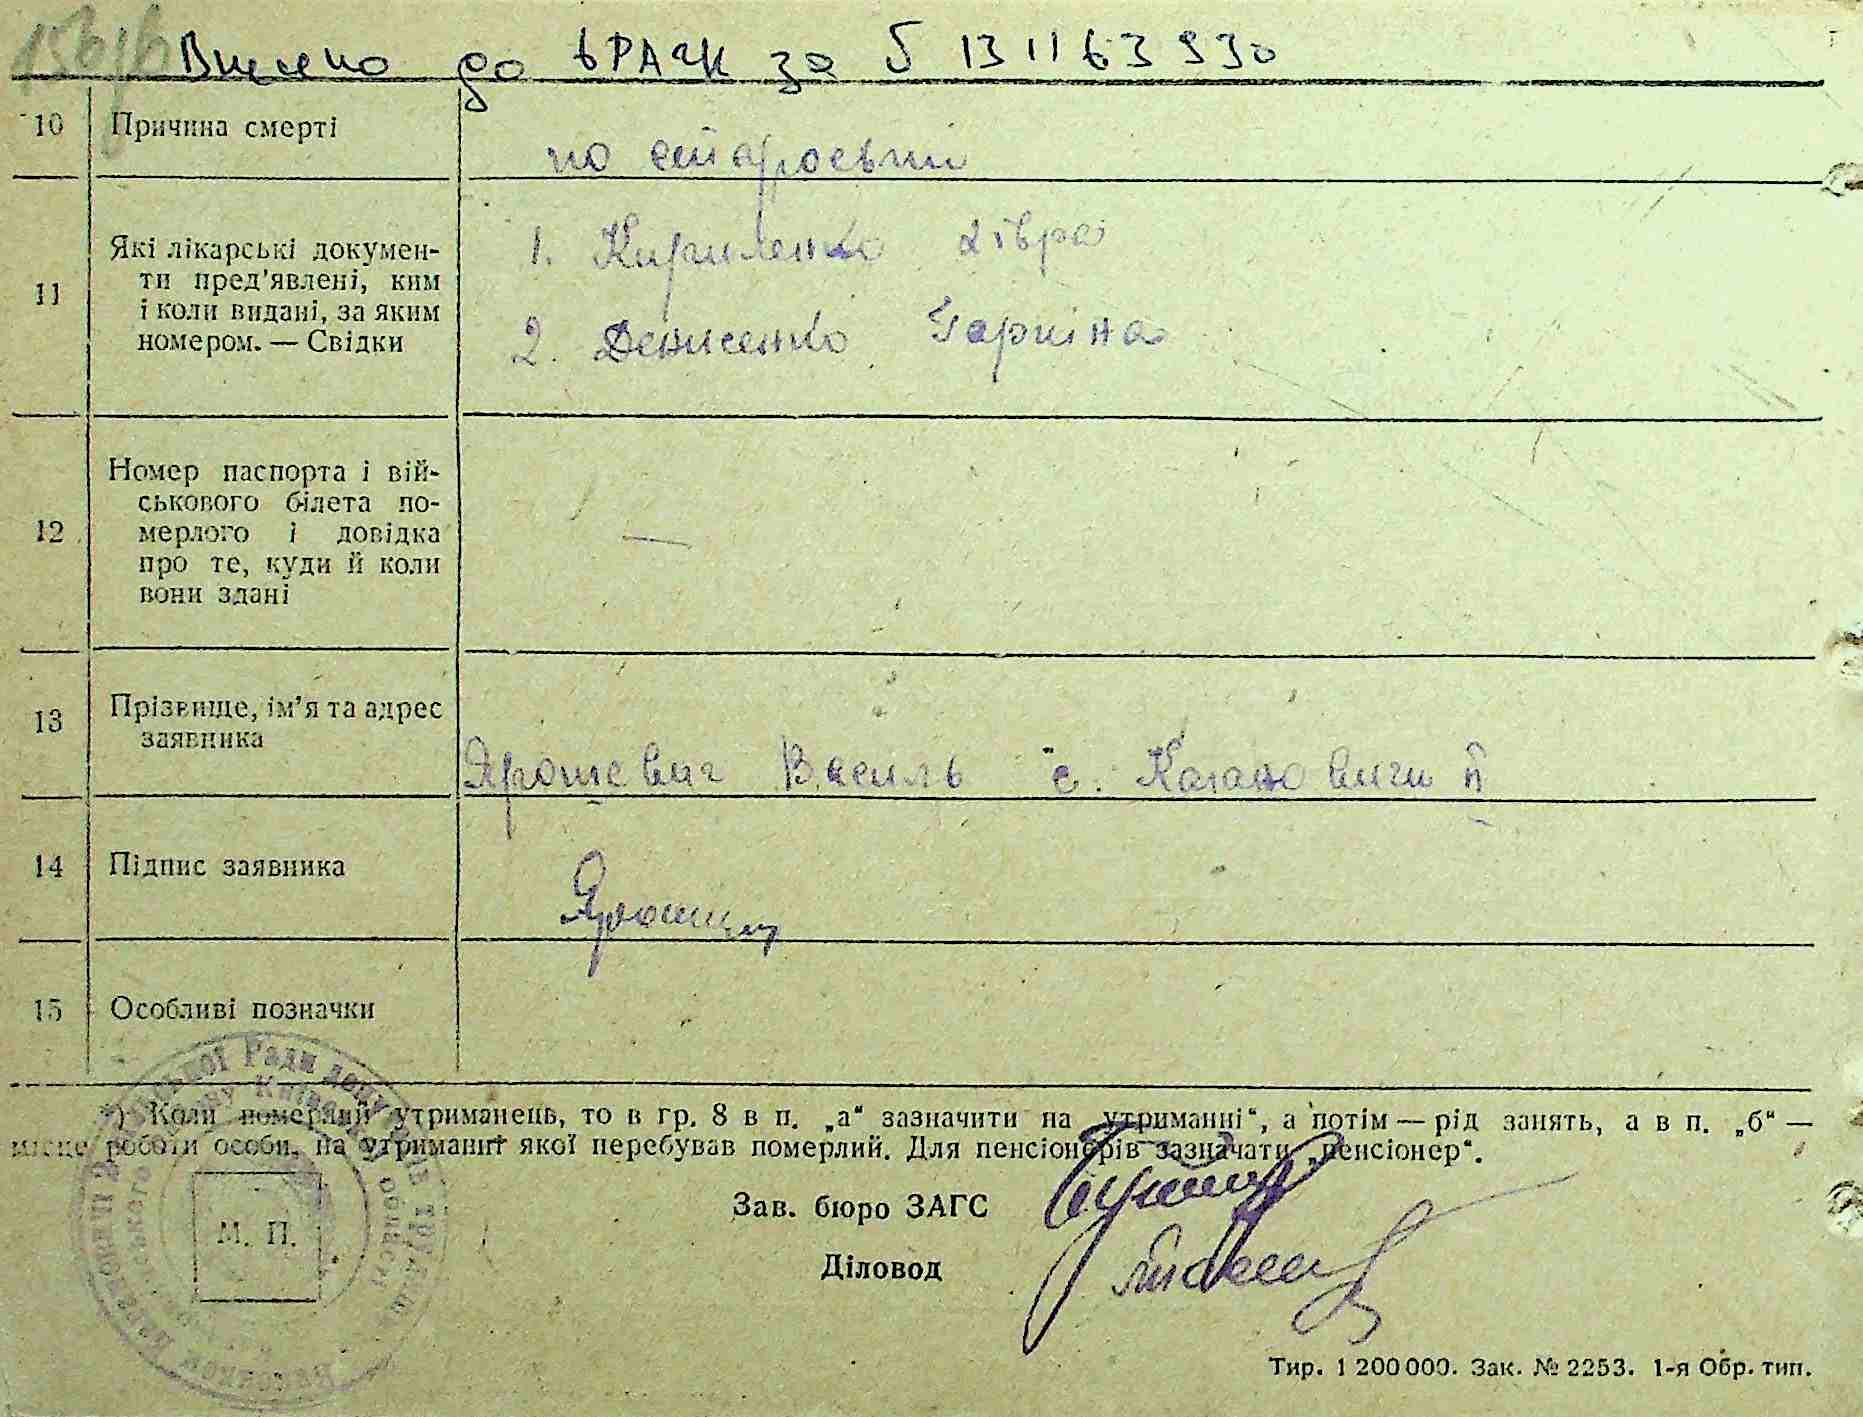 Внесено до ВРАЧК за № 13 11 63 930
10 Причина смерті
по старости
11 Які лікарські докумен-
ти пред'явлені, ким
і коли видані, за яким
номером. — Свідки
1. Кириленко
2. Денисенко Горпина
12 Номер паспорта і вій-
ськового білета по-
мерлого і довідка
про те, куди й коли
вони здані
—
13 Прізвище, ім'я та адрес
заявника
Ярошевич Василь с. Кагановичи II
14 Підпис заявника
15 Особливі позначки
*) Коли померлий утриманець, то в гр. 8 в п. „а“ зазначити на „утриманні“, а потім — рід занять, а в п. „б“ —
місце роботи особи, на утриманні якої перебував померлий. Для пенсіонерів зазначати „пенсіонер“.
М. П.
Зав. бюро ЗАГС
Діловод
Тир. 1 200 000. Зак. № 2253. 1-я Обр. тип.